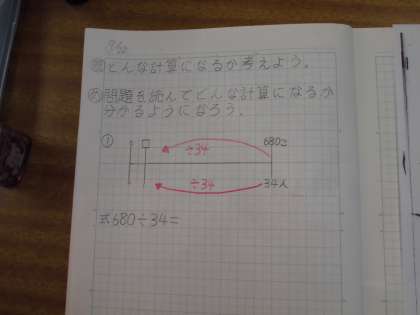 どんな計算になるか考えよう。
問題を読んでどんな計算になるか
分かるようになろう。
①
680こ
÷34
÷34
34人
式680÷34=